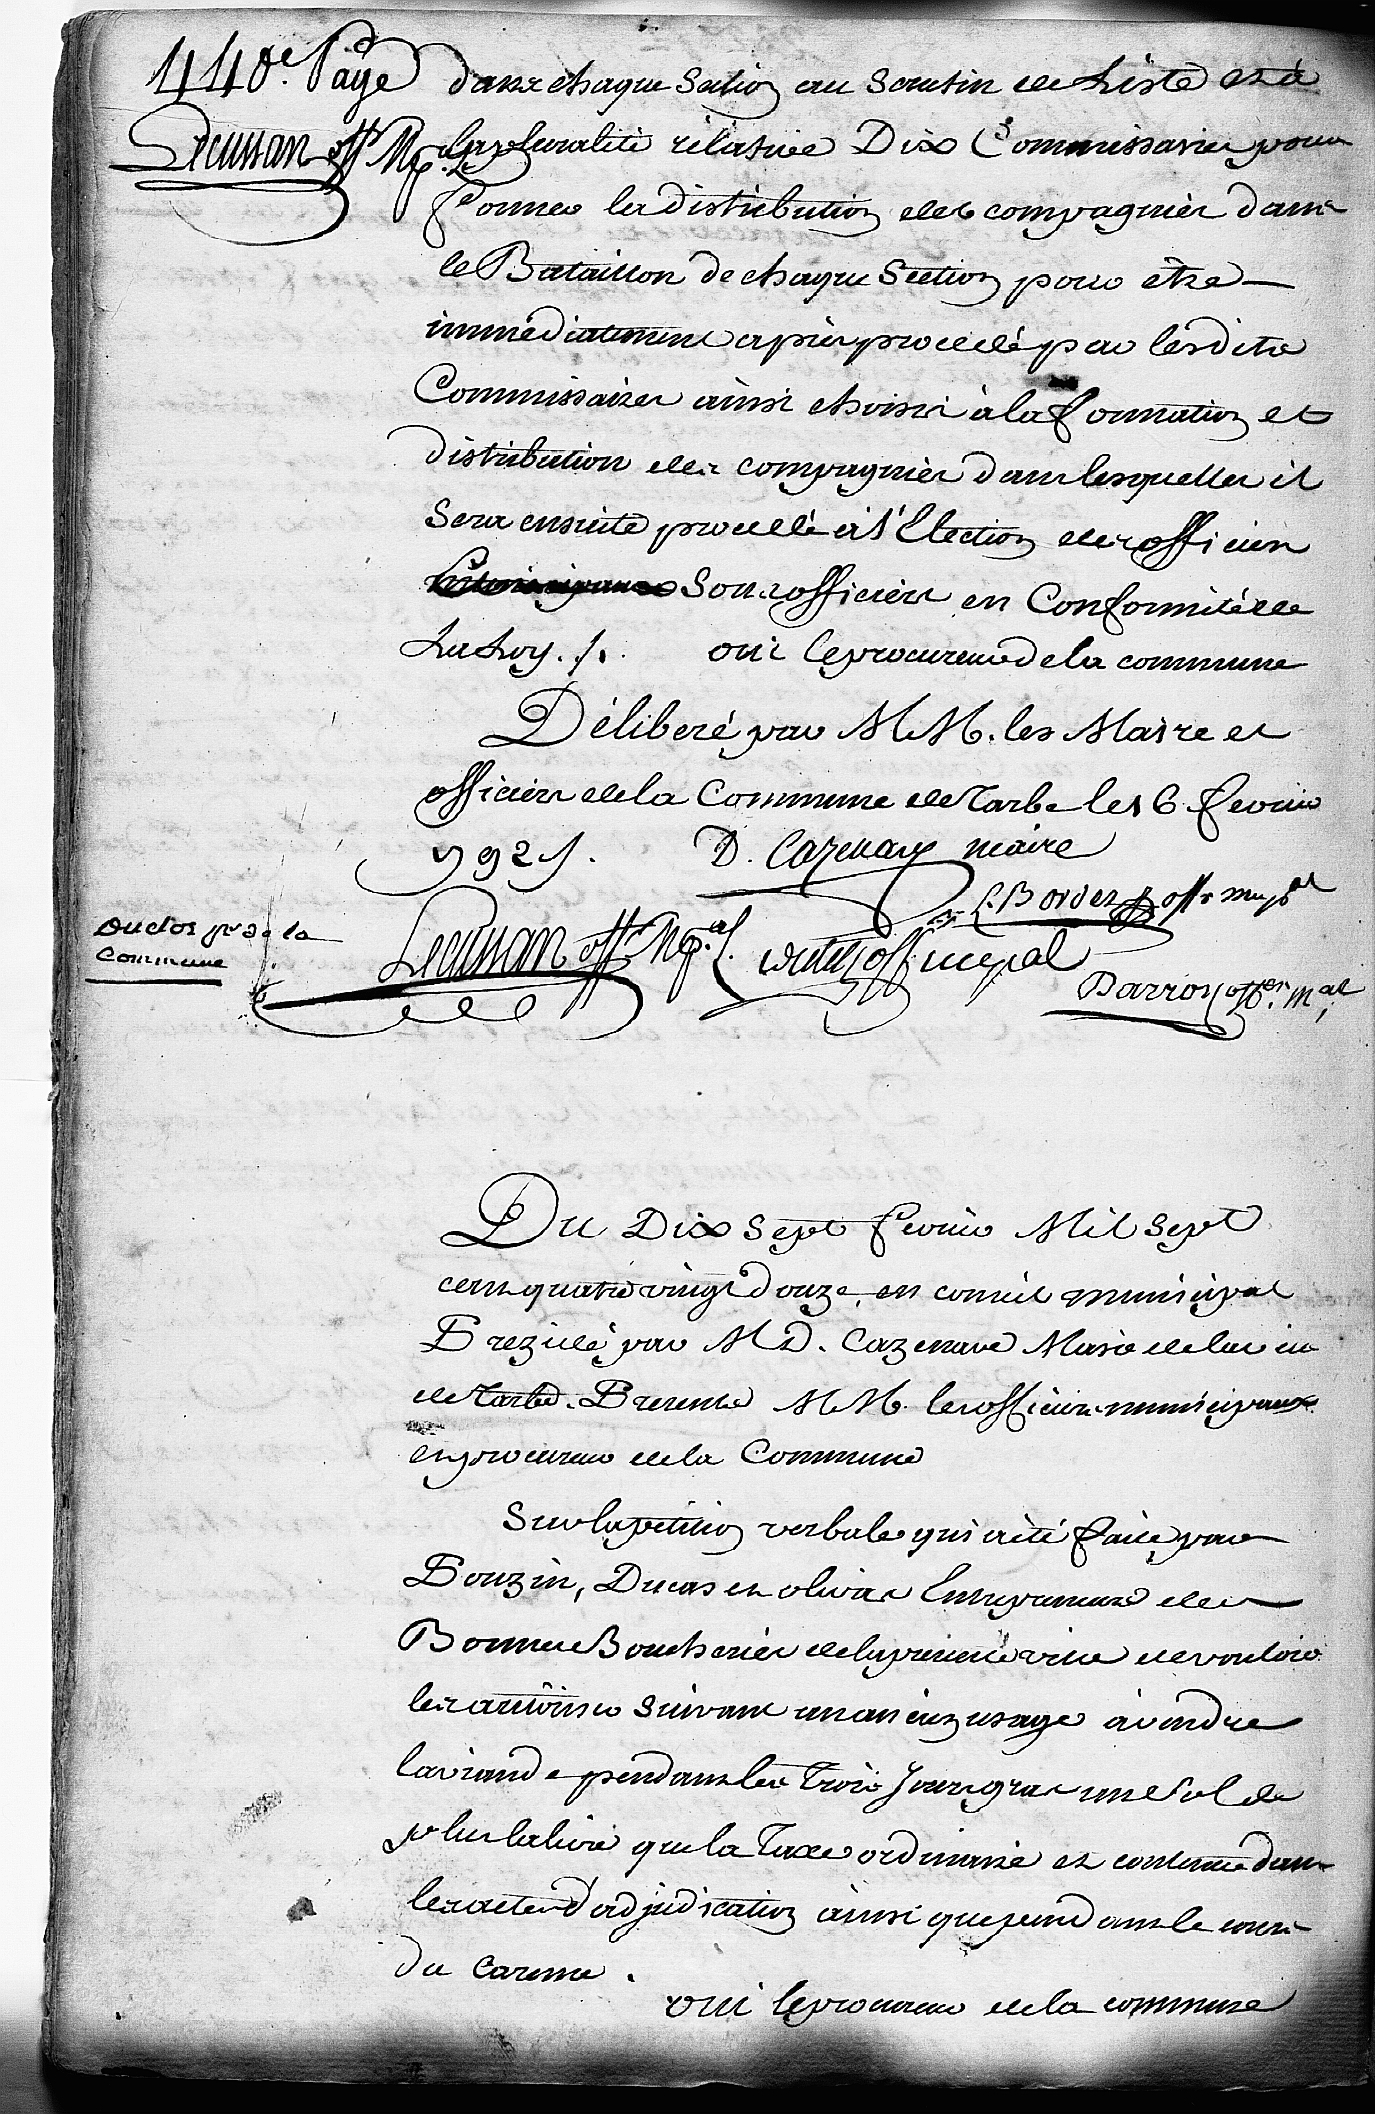 440e. Page
Lecussan offr. Mpal.
dans chaque Section au Scrutin de Liste et à
la pluralité rélative Dix Commissaires pour
former la distribution des compagnies dans
le Bataillon de chaque Section pour être
immédiatement après procédé par lesdits
Commissaires ainsi choisis à la formation et
distribution des compagnies dans lesquelles il
Sera ensuite procédé à l'Election des officiers
Sous officiers en Conformité de
La Loy ./. oui le procureur de la commune
Déliberé par MM. les Maire et
officiers de la Commune de Tarbe le 16 fevrier
1792 /. D. Cazenave maire
Bordes offr mupal
Duclos pr de la
Commune
Lecussan offr. Mpal. off. mupal
Barron offer. mal,
Du Dix Sept fevrier Mil Sept
cens quatre vingt douze, en conseil municipal
Prezidé par M D. Cazenave Maire de la ville
de Tarbe. Presents MM. les officiers municipaux
et procureur de la Commune
Sur la pétition verbale qui a été faite par
Pouzin, Ducas et olivar Entrepreneurs des
Bonnes Boucheries de la presente ville de vouloir
les autoriser Suivant un ancien usage à vendre
la viande pendant les trois Jours gras un Sol de
plus la livre que la Taxe ordinaire et contenue dans
les actes d'adjudication ainsi que pendant le cours
du careme .
oui le procureur de la commune